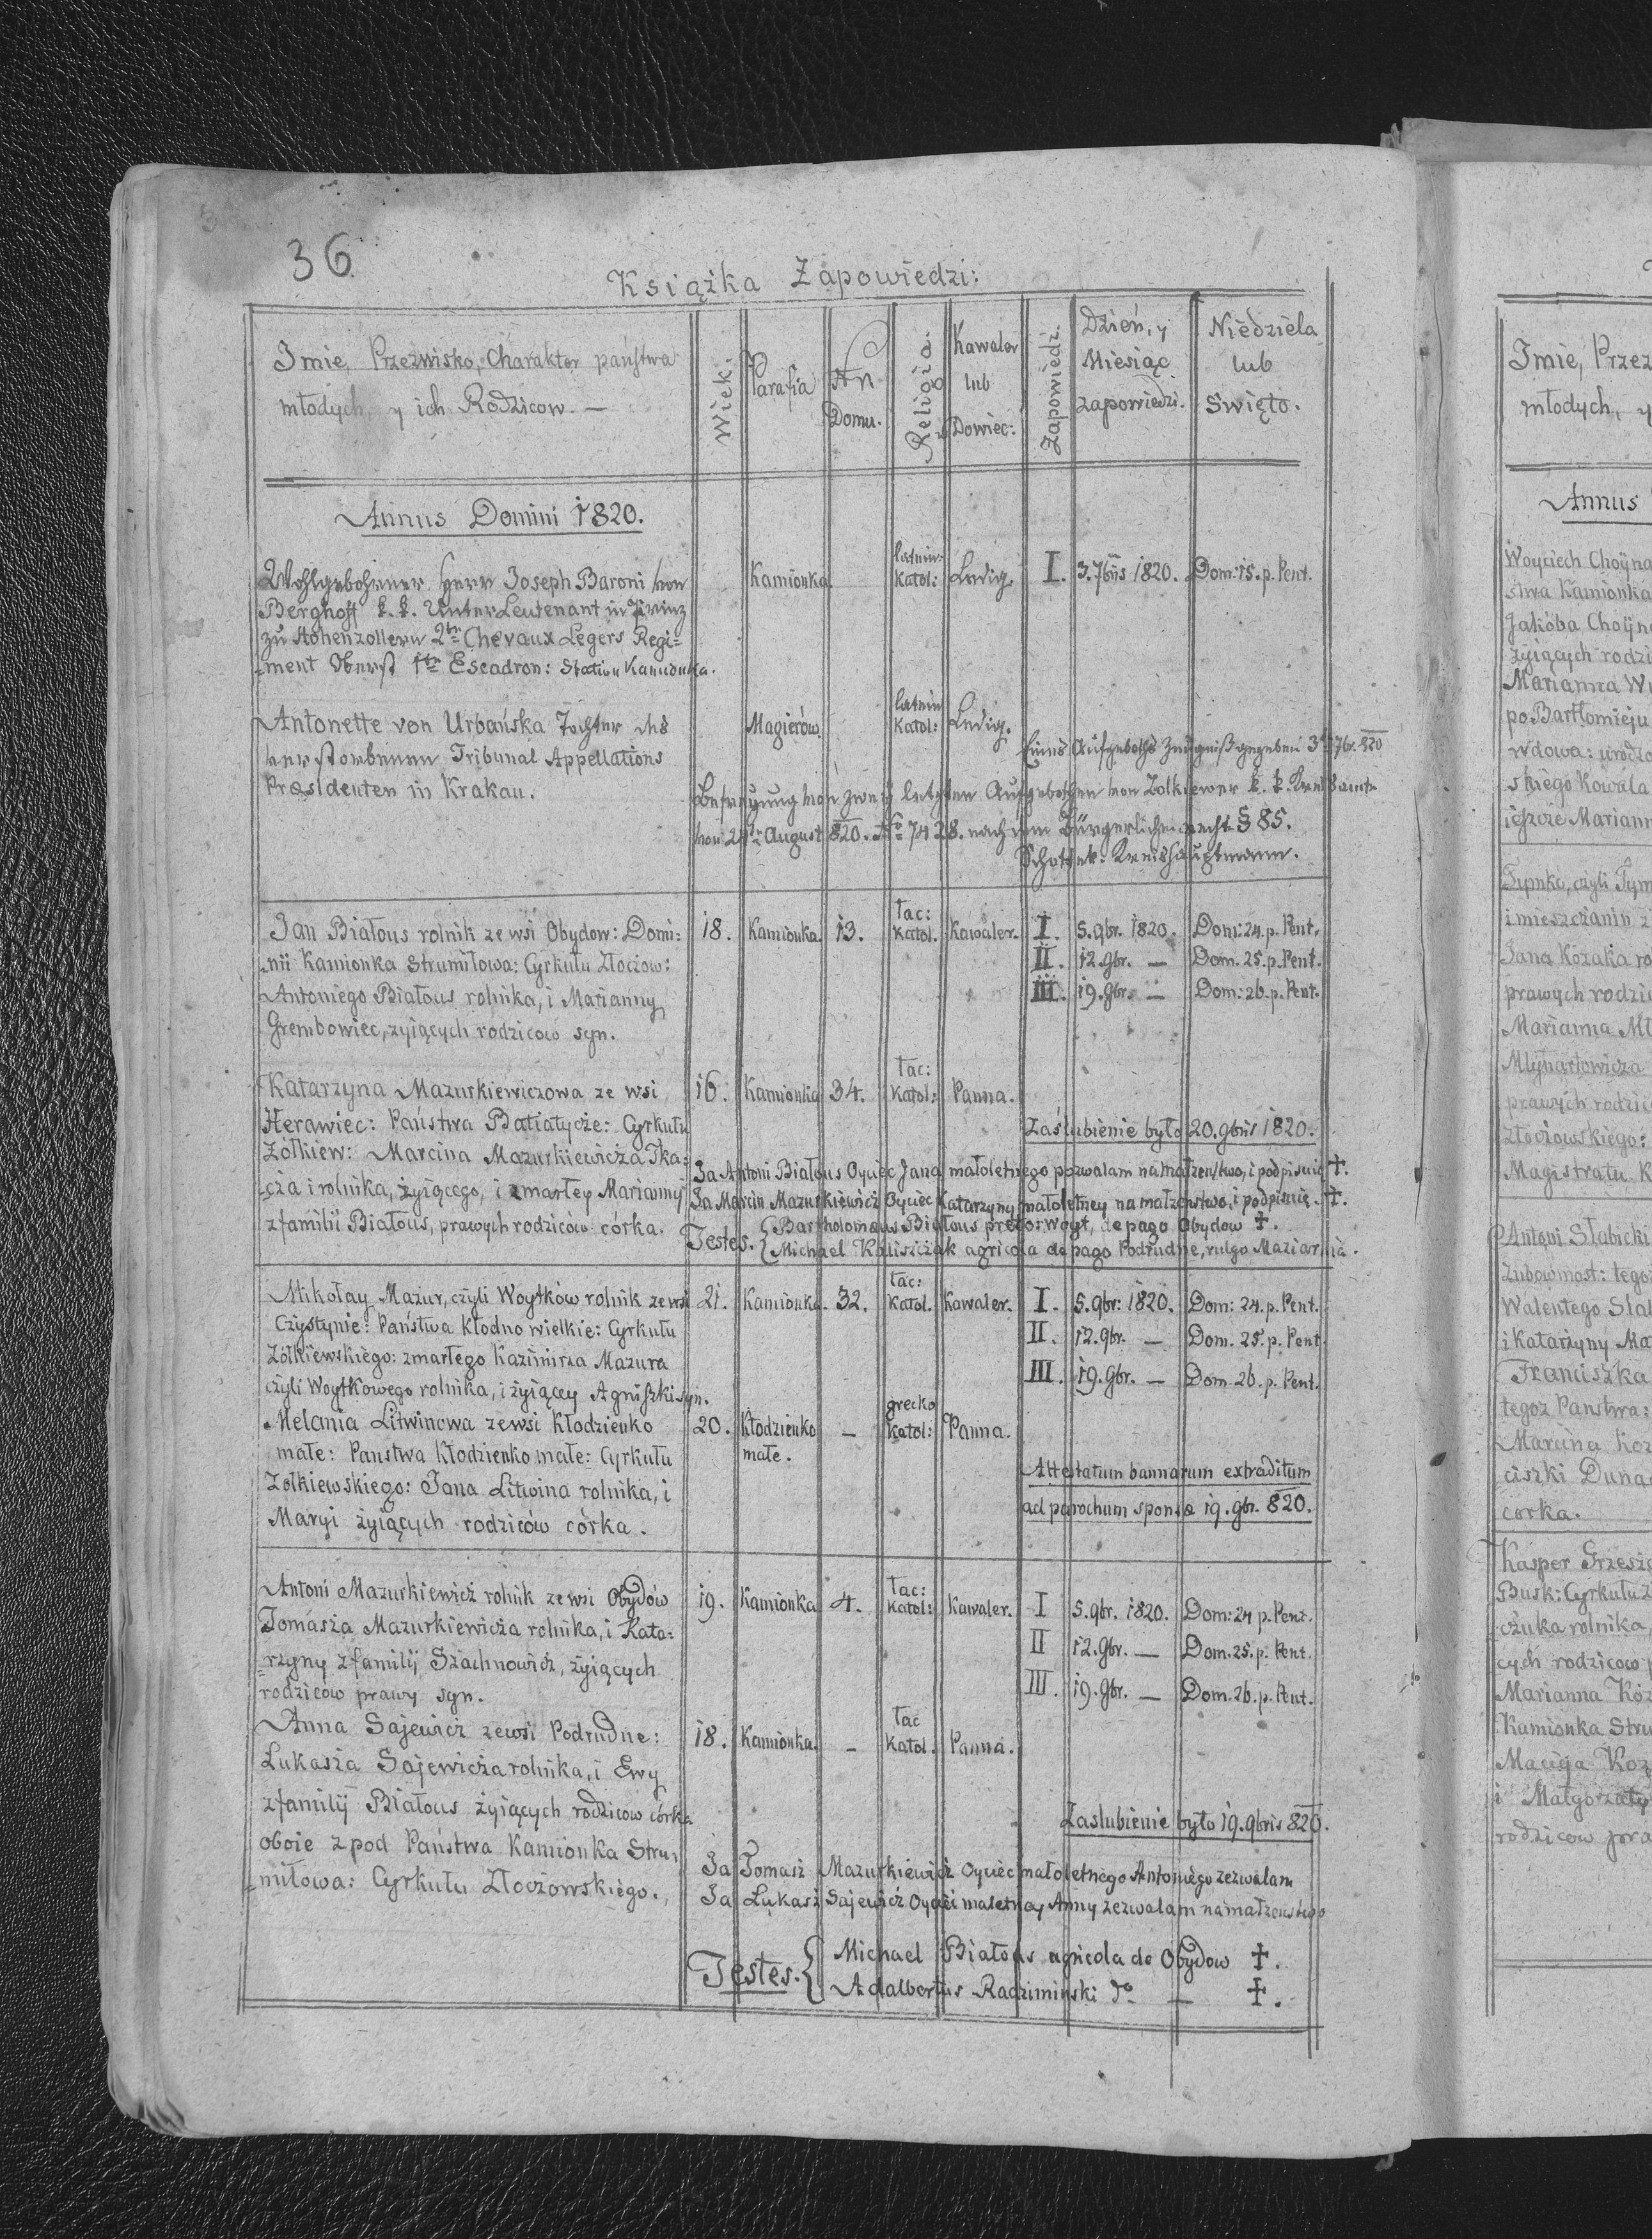 36
Książka Zapowiedzi:
Imie, Przezwisko, Charakter państwa
młodych, y ich Rodzicow. —
Wiek.
Parafia
Nr
Domu.
Religia.
Kawaler
lub
Wdowiec:
Zapowiedzi.
Dzień, y
Miesiąc
zapowiedzi.
Niedziela
lub
Swięto.
Annus Domini 1820.
Wohlgebohrner Herr Joseph Baroni von
Berghoff k. k. Unter Leutenant in Prinz
zu Hohenzollern 2tn Chevaux Legers Regi=
=ment Oberst 1te Escadron: Station Kamionka.
Kamionka
latein:
Katol:
Ledig.
I. 3. 7bris 1820. Dom: 15. p. Pent.
Antonette von Urbańska Tochter des
verstorbenen Tribunal Appellations
Præsidenten in Krakau.
Magierów.
latein
Katol:
Ledig.
Eines Aufgeboths Zeugniß gegeben 3t 7br. 820
Befreyung von zwey letzten Aufgebothen von Zolkiewer k. k. Kreisamte
von 24te August 820. No 7428. nach dem Bürgerlichen recht § 85.
Kreishauptmann.
Jan Białous rolnik ze wsi Obydow: Domi:
=nii Kamionka Strumiłowa: Cyrkułu Złoczow:
Antoniego Białous rolnika, i Marianny
Grembowiec, zyiących rodzicow syn.
18. Kamionka. 13.
łac:
Katol.
Kawaler.
I. 5. 9br. 1820. Dom: 24. p. Pent.
II. 12. 9br. — Dom. 25. p. Pent.
III. 19. 9br. — Dom: 26. p. Pent.
Katarzyna Mazurkiewiczowa ze wsi
Herawiec: Państwa Batiatycze: Cyrkułu
Żółkiew: Marcina Mazurkiewicza Tka:
=cza i rolnika, żyiącego, i zmarłey Marianny
z familii Białous, prawych rodziców córka.
16. Kamionka 34.
łac:
Katol:
Panna.
Zaślubienie było 20. 9bris 1820.
Ja Antoni Białous Oyciec Jana małoletnego pozwalam na małzenstwo, i podpisuię †.
Ja Marcin Mazurkiewicz Oyciec Katarzyny małoletney na małzenstwo, i podpisuię. †.
Testes. { Bartholomæus Białous præto: woyt, de pago Obydow †.
Michael Kaliszczak agricola de pago Podrudne, vulgo Maziarnia.
Mikołay Mazur, czyli Woytków rolnik ze wsi
Czystynie: Państwa Kłodno wielkie: Cyrkułu
Żółkiewskiego: zmarłego Kazimirza Mazura
czyli Woytkowego rolnika, i żyiącey Agniszki syn.
21. Kamionka. 32.
łac:
Katol.
Kawaler.
I. 5. 9br: 1820. Dom: 24. p. Pent.
II. 12. 9br. — Dom. 25. p. Pent
III. 19. 9br. — Dom. 26. p. Pent.
Melania Litwinowa ze wsi Kłodzienko
małe: Panstwa Kłodzienko małe: Cyrkułu
Zołkiewskiego: Jana Litwina rolnika, i
Maryi żyiących rodziców córka.
20. Kłodzienko
małe.
—
grecko
Katol:
Panna.
Attestatum bannarum extraditum
ad parochum sponsæ 19. 9br. 820.
Antoni Mazurkiewicz rolnik ze wsi Obydów
Tomasza Mazurkiewicza rolnika, i Kata:
=rzyny z familij Szachnowicz, żyiących
rodziców prawy syn.
19. Kamionka 4.
łac:
Katol:
Kawaler.
I 5. 9br. 1820. Dom: 24 p. Pent.
II 12. 9br. — Dom. 25. p. Pent.
III. 19. 9br. — Dom. 26. p. Pent.
Anna Sajewicz ze wsi Podrudne:
Lukasza Sajewicza rolnika, i Ewy
z familij Białous żyiących rodzicow córka
oboie z pod Państwa Kamionka Stru=
=miłowa: Cyrkułu Złoczowskiego.
18. Kamionka. —
łac
Katol.
Panna.
Zaslubienie było 19. 9bris 820.
Ja Tomasz Mazurkiewicz Oyciec małoletnego Antoniego zezwalam
Ja Łukasz Sajewicz Oyciec maletney Anny zezwalam na małzenstwo
Testes. { Michael Białous agricola de Obydow †.
Adalbertus Radziminski do — †.
Imie, Przez
młodych, y
Annus
Woyciech Choÿna
stwa Kamionka
Jakóba Choÿn
żyiących rodzi
Marianna W
po Bartłomieju
wdowa: urodzo
skiego Kowala
ieszcze Mariann
Tymko, czyli Tym
i mieszczanin z
Jana Kozaka ro
prawych rodzic
Marianna Mł
Młynarłowicza
prawych rodzic
Złoczowskiego:
Magistratu K
Antoni Słabicki
Żubowmost: tego
Walentego Słab
i Katarzyny Ma
Franciszka
tegoz Panstwa:
Marcina Koz
ciszki Dunas
corka.
Kasper Grzeszc
Busk: Cyrkułu Z
czuka rolnika,
cych rodzicow
Marianna Koz
Kamionka Stru
Macieja Koz
i Małgorzaty
rodzicow pra